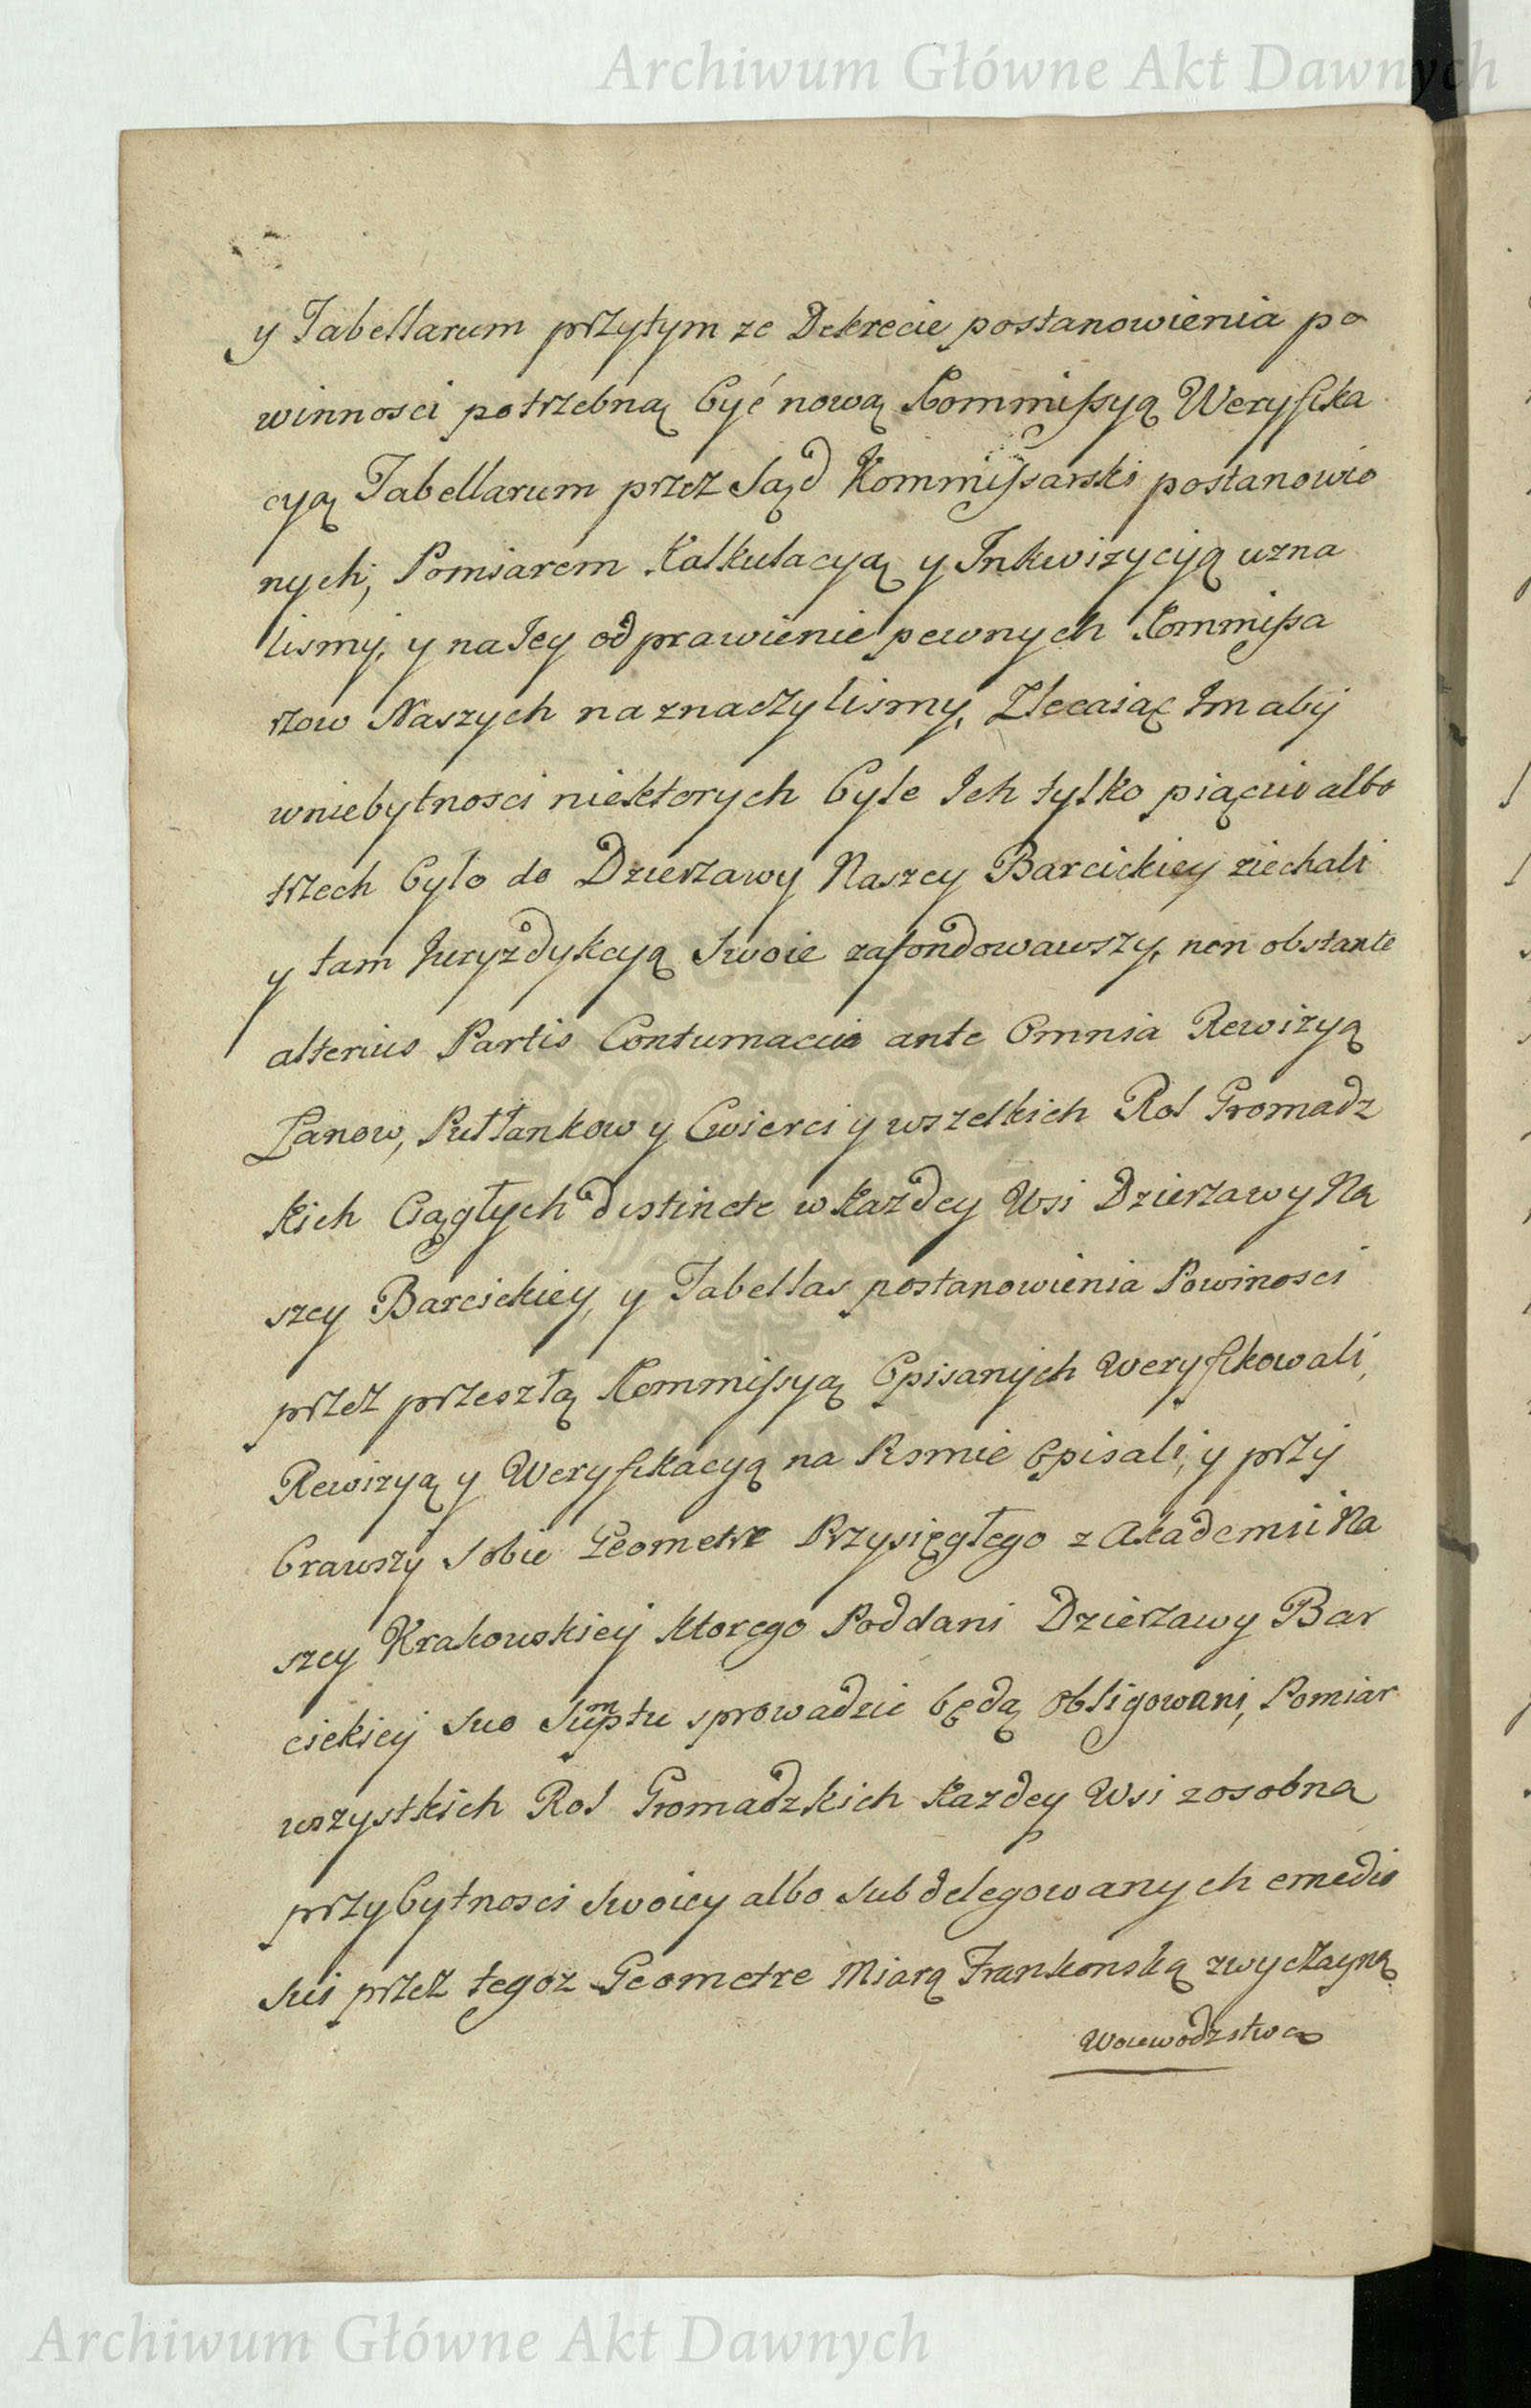 Archiwum Główne Akt Dawnych
y Tabellarum przytym ze Dekrecie postanowienia po
winnosci potrzebną być nową Kommissyą Weryfika
cyą Tabellarum przez Sąd Kommissarski postanowio
nych, Pomiarem Kalkulacyą y Inkwizycyą uzna
lismy, y na Jey odprawienie pewnych Kommissa
rzow Naszych naznaczylismy, Zlecaiąc Im aby
wniebytnosci niektorych byle Ich tylko piąciu albo
trzech było do Dzierzawy Naszey Barcickiey ziechali
y tam Juryzdykcyą Swoie zafondowawszy, non obstante
alterius Partis Contumacia ante Omnia Rewizyą
Łanow, Pułłankow y Cwierci y wszelkich Rol Gromadz
kich Ciągłych distincte w kazdey Wsi Dzierzawy Na
szey Barcickiey, y Tabellas postanowienia Powinosci
przez przeszłą Kommissyą Opisanych weryfikowali,
Rewizyą y Weryfikacyą na Pismie Opisali, y przy
brawszy Sobie Geometrę Przysięgłego z Akademii Na
szey Krakowskiey ktorego Poddani Dzierzawy Bar
cickiey Suo Sumptu sprowadzic będą obligowani, Pomiar
wszystkich Rol Gromadzkich kazdey Wsi zosobna
przybytnosci Swoiey albo Subdelegowanych emedio
Sui przez tegoz Geometre Miarą Frankonską zwyczayną
Woiewodzstwa
Archiwum Główne Akt Dawnych